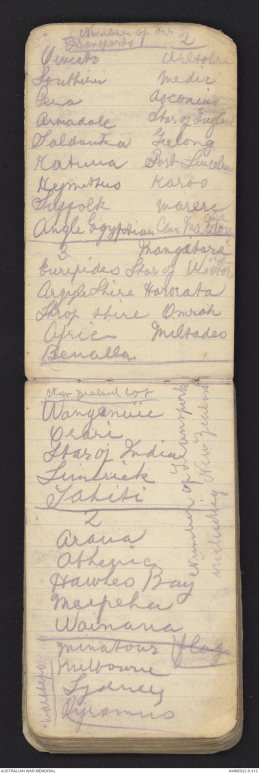 Number of our
Transports 2
Orvieto Wiltshire
Southern Medic
Pera Ascanius
Armadale Star of England
Saldanha Geelong
Katuna Port Lincoln
Hymettus Karoo
Suffolk Marere
Anglo Egyptian Clan McC
3 Mangatara
Euripides Star of Victor
Argyle Shire Hororata
Shrop shire Omrah
Afric Miltades
Benalla
New Zealand Lot
Wanganui
Orari
Star of India
Limerick
Tahiti
2
Arava
Athenic
Hawkes Bay
Waimana
Minatour Flag
Melbourne
Sydney
Pyramus
Warships
Number of Transports
including New Zealand
AUSTRALIAN WAR MEMORIAL